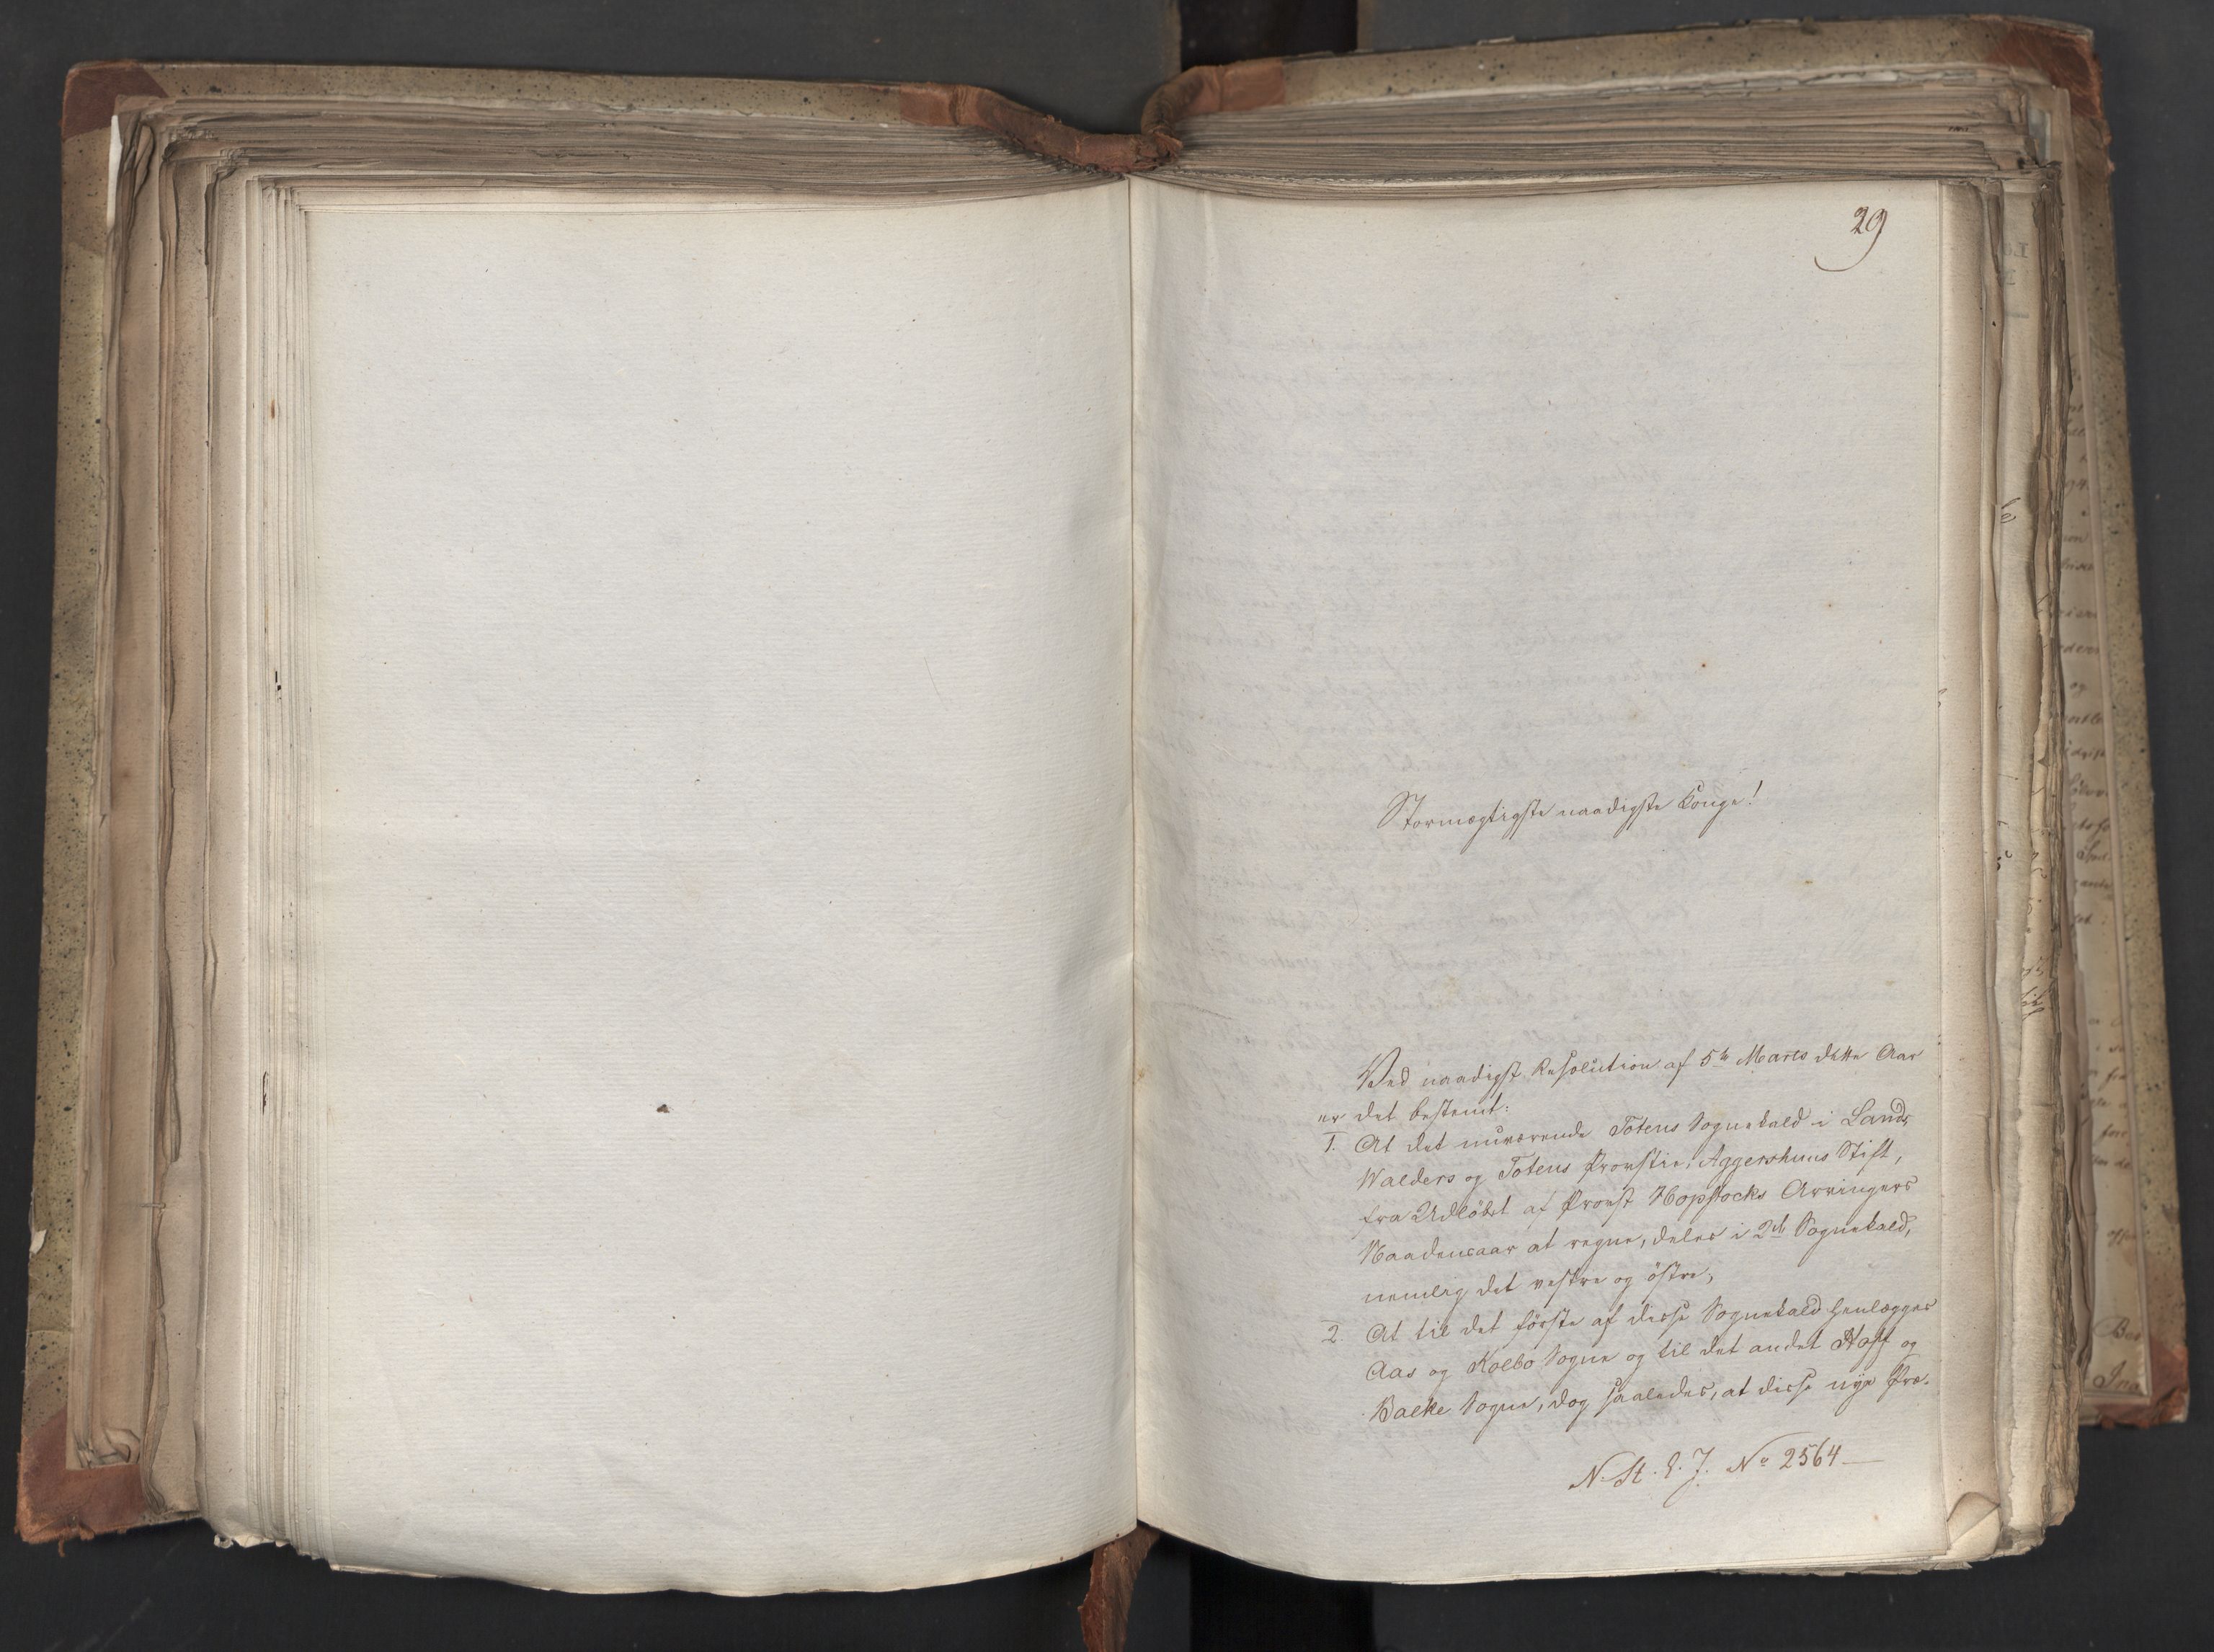 29
Stormægtigste naadigste Konge!
Ved naadigst Resolution af 5te Marts dette Aar
er det bestemt:
1. At det nuværende Totens Sognekald i Lands,
Walders og Totens Provstie, Aggershuus Stift,
fra Udløbet af Provst Hopstocks Arvingers
Naadensaar at regne, deles i 2de Sognekald,
nemlig det vestre og østre,
2. At til det første af disse Sognekald henlægges
Aas og Kolbo Sogne og til det andet Hoff og
Balke Sogne, dog saaledes, at disse nye Præ-
N. St. E. J. No 2564